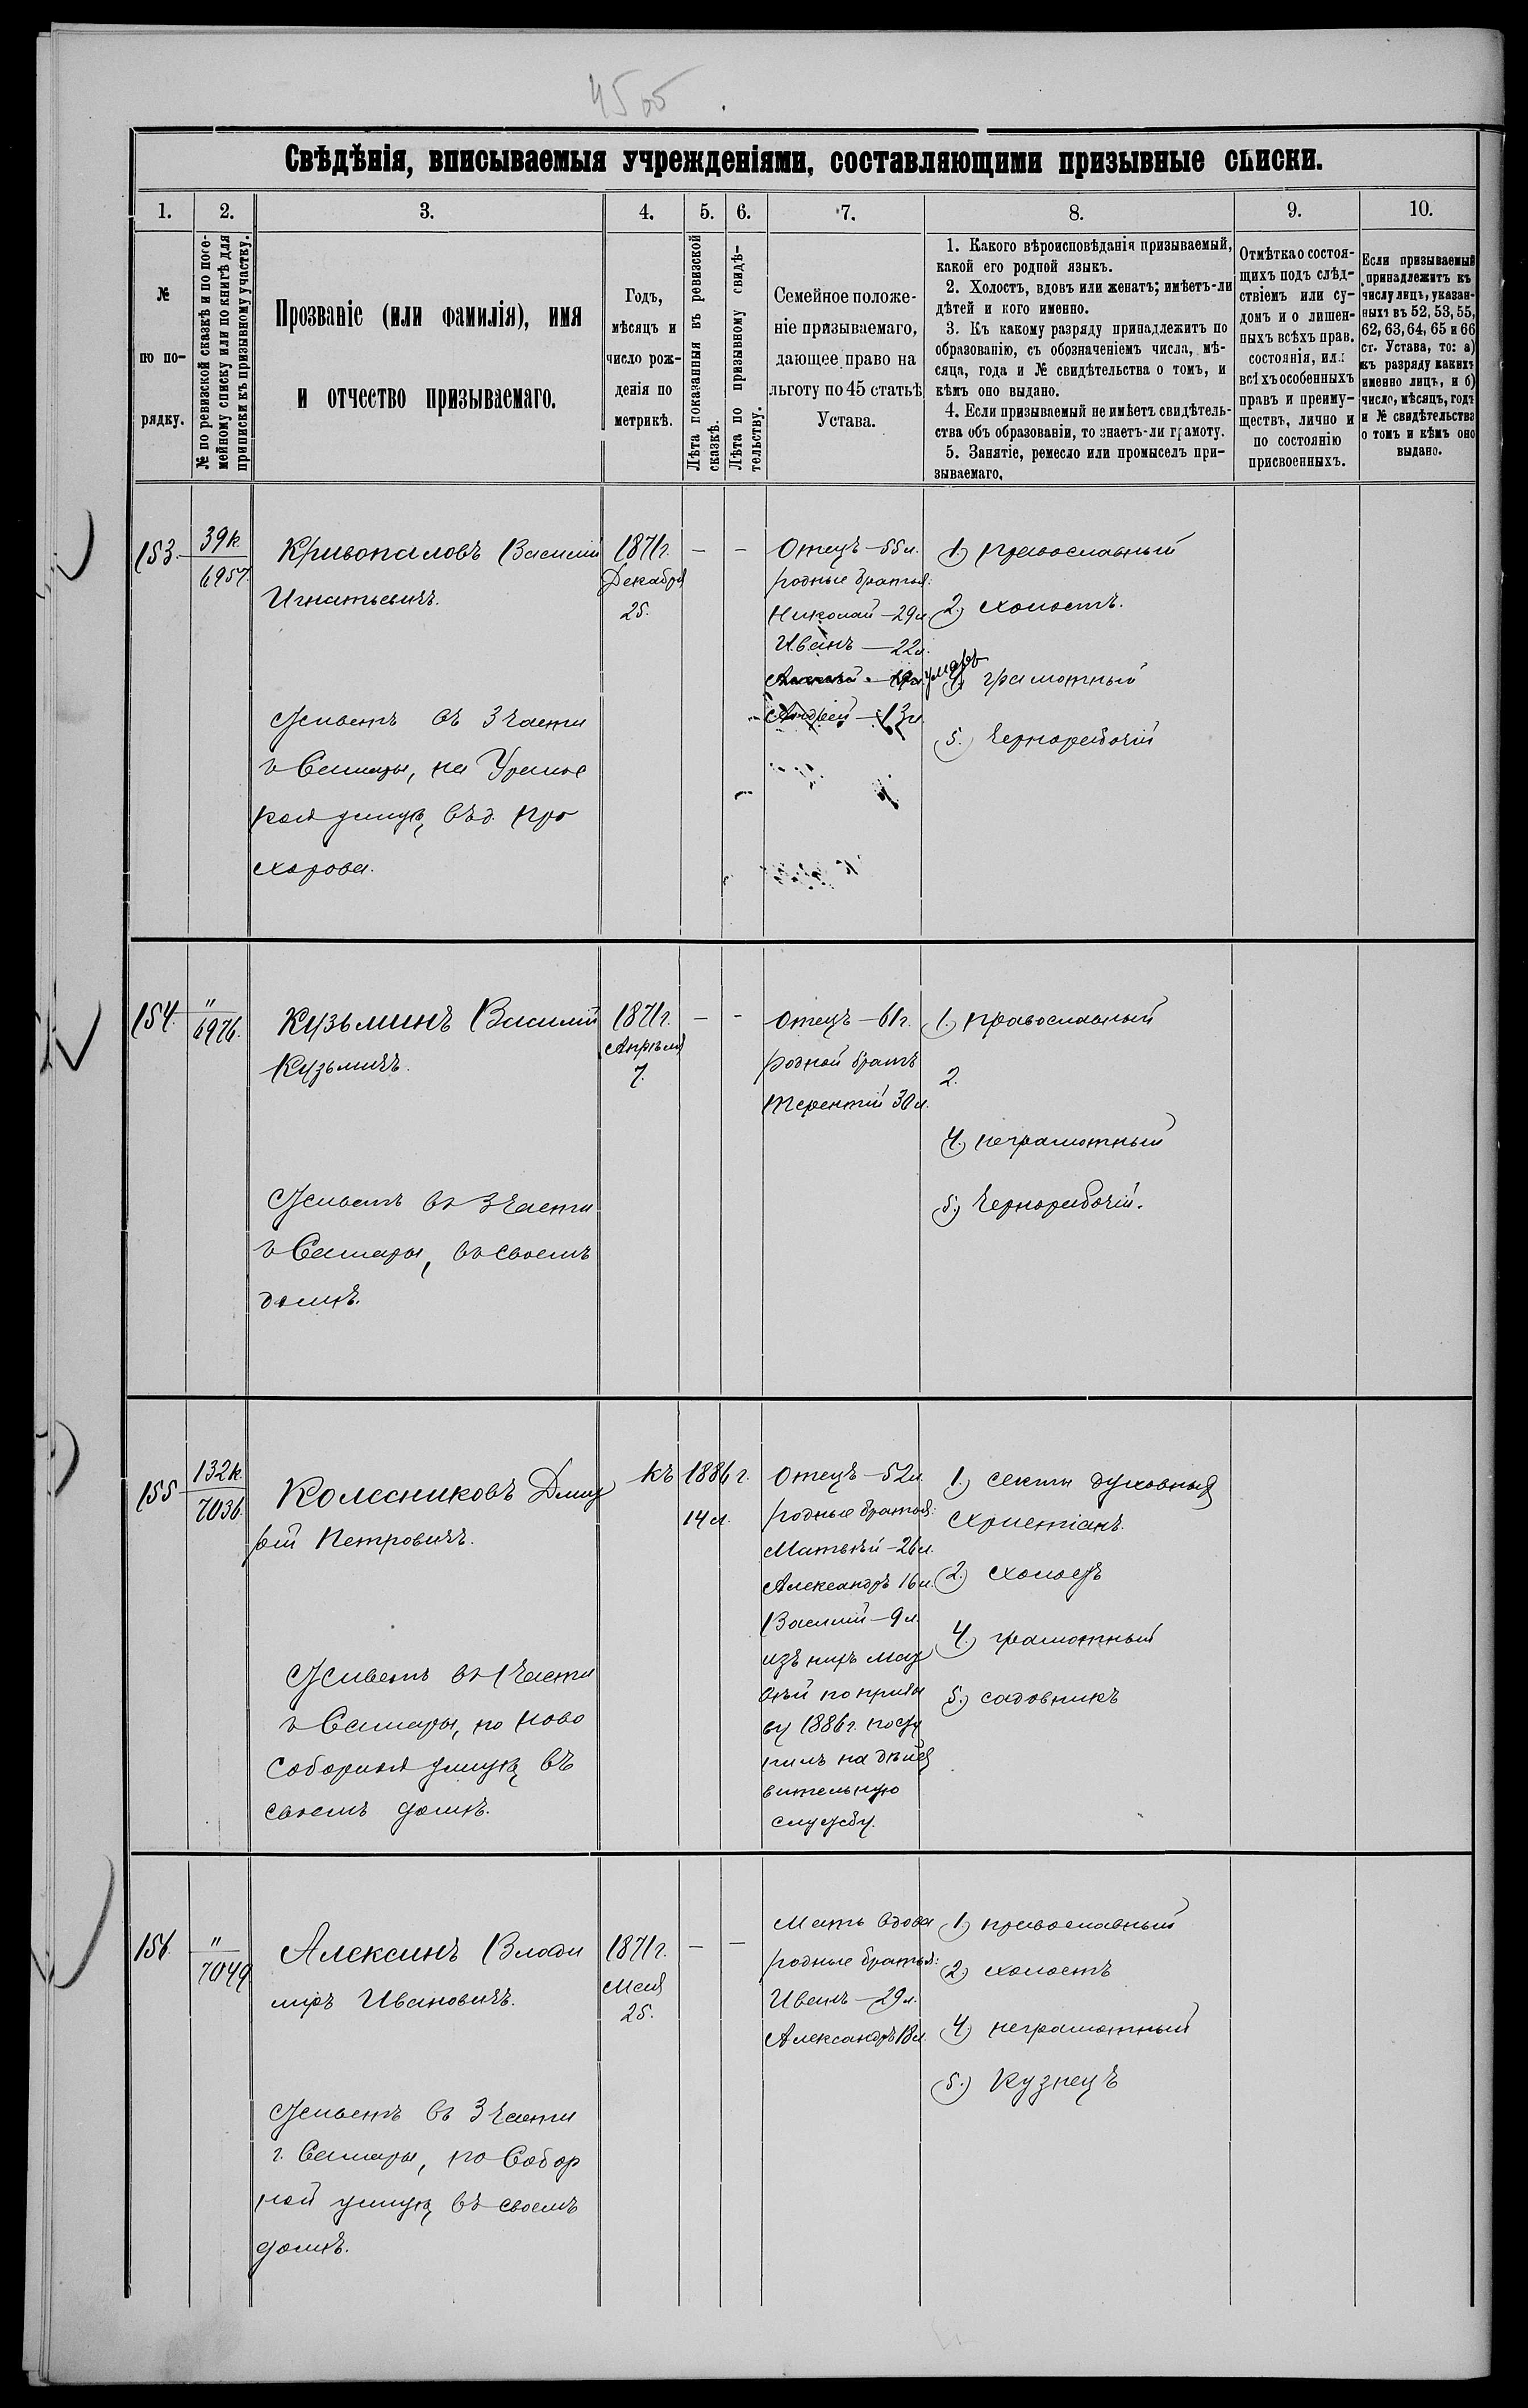 45об
Свѣдѣнія, вписываемыя учрежденіями, составляющими призывные списки.
1.
2.
3.
4.
5.
6.
7.
8.
9.
10.
№
по по-
рядку.
№ по ревизской сказкѣ и по посе-
мейному списку или по книгѣ для
приписки къ призывному участку.
Прозваніе (или фамилія), имя
и отчество призываемаго.
Годъ,
мѣсяцъ и
число рож-
денія по
метрикѣ.
Лѣта показанныя въ ревизской
сказкѣ.
Лѣта по призывному свидѣ-
тельству.
Семейное положе-
ніе призываемаго,
дающее право на
льготу по 45 статьѣ
Устава.
1. Какого вѣроисповѣданія призываемый,
какой его родной языкъ.
2. Холостъ, вдовъ или женатъ; имѣетъ-ли
дѣтей и кого именно.
3. Къ какому разряду принадлежитъ по
образованію, съ обозначеніемъ числа, мѣ-
сяца, года и № свидѣтельства о томъ, и
кѣмъ оно выдано.
4. Если призываемый не имѣетъ свидѣтель-
ства объ образованіи, то знаетъ-ли грамоту.
5. Занятіе, ремесло или промыселъ при-
зываемаго.
Отмѣтка о состоя-
щихъ подъ слѣд-
ствіемъ или су-
домъ и о лишен-
ныхъ всѣхъ прав.
состоянія, ил.:
всѣхъ особенныхъ
правъ и преиму-
ществъ, лично и
по состоянію
присвоенныхъ.
Если призываемый
принадлежитъ къ
числу лицъ, указан-
ныхъ въ 52, 53, 55,
62, 63, 64, 65 и 66
ст. Устава, то: а)
къ разряду какихъ
именно лицъ, и б)
число, мѣсяцъ, годъ
и № свидѣтельства
о томъ и кѣмъ оно
выдано.
153.
39к.
6957.
Кривопаловъ Василій
Игнатьевичъ.
Живетъ въ 3 части
г Самары, на Ураль
ской улицѣ, въ д. Про
хорова.
1871г.
Декабря
25.
–
–
Отецъ – 55л.
родные братья:
Николай – 29л
Иванъ – 22л.
умеръ
Андрей – 13л.
1.) православный
2.) холостъ.
4.) грамотный
5.) чернорабочій
154.
"
6976.
Кузьминъ Василій
Кузьмичъ.
Живетъ въ 3 части
г Самары, въ своемъ
домѣ.
1871г.
Апрѣля
7.
–
–
Отецъ – 61г.
родной братъ
Терентій 30л.
1.) православный
2.
4.) неграмотный
5.) чернорабочій.
155
132к.
7036.
Колесниковъ Дмит
рій Петровичъ.
Живетъ въ 1 части
г Самары, по Ново
соборной улицѣ въ
своемъ домѣ.
къ 1886 г.
14 л.
Отецъ – 52л.
родные братья:
Матвѣй – 26л.
Александръ 16л.
Василій – 9л.
изъ нихъ Мат
вѣй по призы
ву 1886г. посту
пилъ на дѣйст
вительную
службу.
1.) секты духовныхъ
христіанъ.
2.) холостъ
4.) грамотный
5.) садовникъ
156.
"
7049
Алексинъ Влади
миръ Ивановичъ.
Живетъ въ 3 части
г. Самары, по Собор
ной улицѣ въ своемъ
домѣ.
1871г.
Мая
25.
–
–
Мать вдова
родные братья:
Иванъ – 29л.
Александръ 18л.
1.) православный
2.) холостъ
4.) неграмотный
5.) кузнецъ